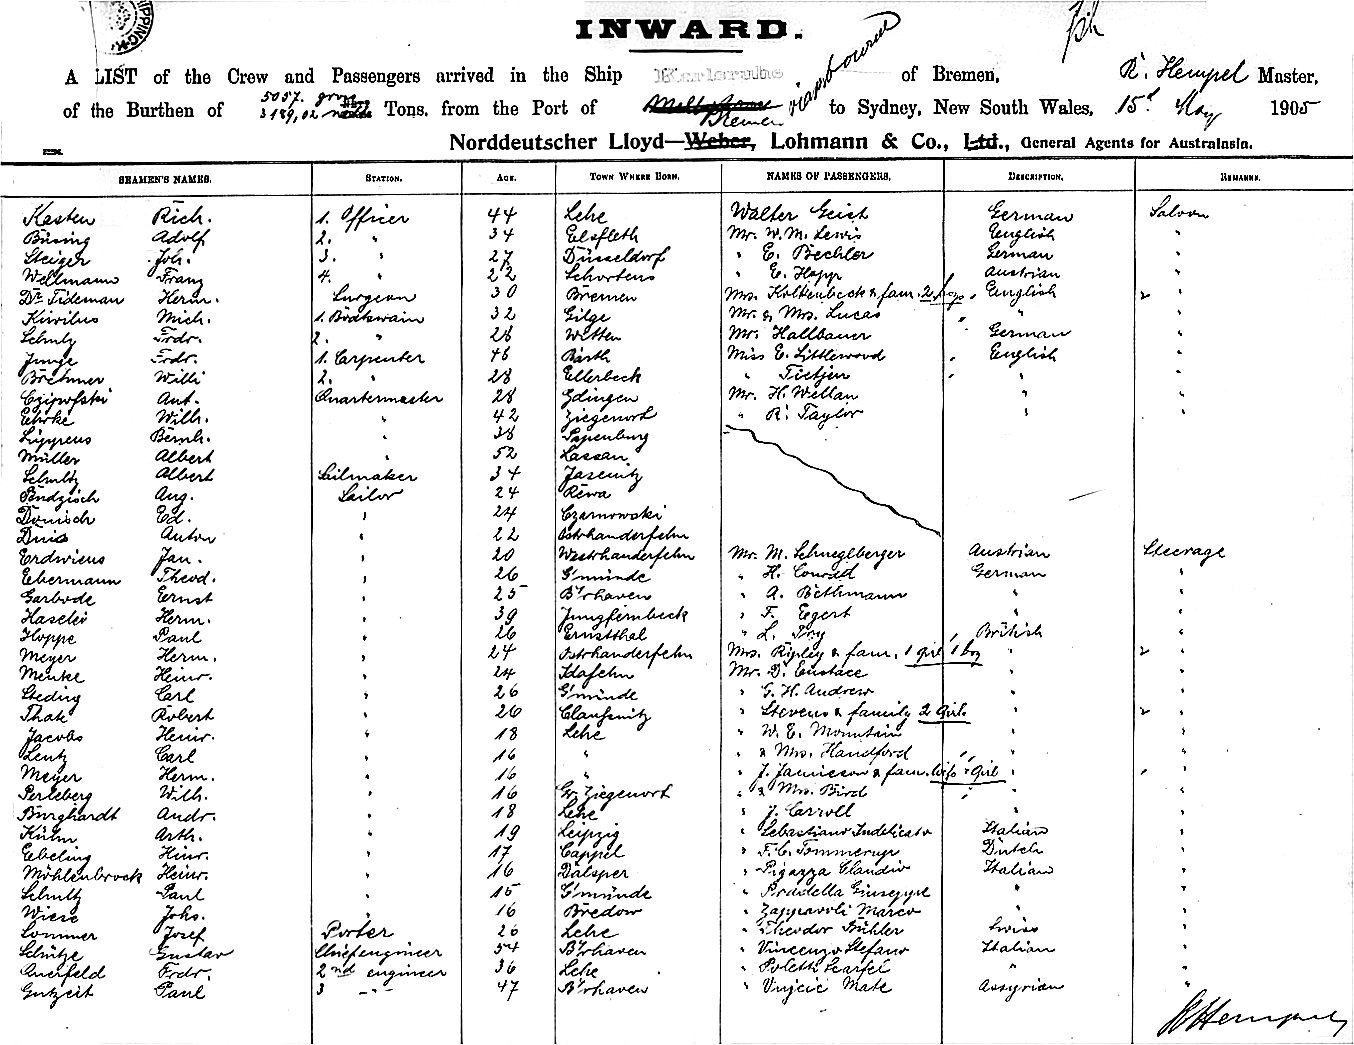 INWARD.
A LIST of the Crew and Passengers arrived in the Ship Karlsruhe of Bremen, R. Hempel Master,
of the Burthen of 5057. gross 3189,02 Tons, from the Port of Bremen via to Sydney, New South Wales, 15th May 1905
Norddeutscher Lloyd—Weber, Lohmann & Co., Ltd., General Agents for Australasia.
SEAMEN'S NAMES. STATION. AGE. TOWN WHERE BORN. NAMES OF PASSENGERS. DESCRIPTION. REMARKS.
Kasten Rich. 1. Officer 44 Lehe Walter Geist German Saloon
Büsing Adolf 2. " 34 Elsfleth Mr. W. M. Lewis English "
Steiger Joh. 3. " 27 Düsseldorf " E. Bechler German "
Wellmann Franz 4. " 22 Schortens " E. Hopp Austrian "
Dr. Tideman Herm. Surgeon 30 Bremen Mrs. Koltenbeck & fam. 2 boys English "
Mich. 1. Boatswain 32 Gilge Mr. & Mrs. Lucas " "
Schulz Frdr. 2. " 28 Witten Mr. Hallbauer German "
Junge Frdr. 1. Carpenter 48 Barth Miss E. Littlewood English "
Brehmer Willi 2. " 28 Ellerbeck " Tietjen " "
Ant. Quartermaster 28 Edingen Mr. H. Wellan " "
Ehrke Wilh. " 42 Ziegenort " R. Taylor " "
Lippens Bernh. " 38 Papenburg
Müller Albert " 52 Lassan
Schultz Albert Sailmaker 34 Jasenitz
Pendzisch Aug. Sailor 24 Rewa
Dönisch Ed. " 24 Czarnowski
Anton " 22 Ostrhanderfehn
Erdwiens Jan. " 20 Westrhanderfehn Mr. M. Schneglberger Austrian Steerage
Ebermann Theod. " 26 G'münde " H. Conrad German "
Garbode Ernst " 25 B'rhaven " A. Bethmann " "
Haselei Herm. " 39 Jungfernbeck " F. Egert " "
Hoppe Paul " 26 Ernstthal " L. British "
Meyer Herm. " 24 Ostrhanderfehn Mrs. Ripley & fam. 1 girl 1 boy " 2 "
Menke Heinr. " 24 Idafehn Mr. D. Eustace " "
Steding Carl " 26 G'münde " G. H. Andrew " "
Thate Robert " 20 Claußnitz " Stevens & family 2 Girls " 2 "
Jacobs Heinr. " 18 Lehe " W. E. Mountain " "
Lentz Carl " 16 " " & Mrs. Handford " "
Meyer Herm. " 16 " " J. Jamieson & fam. Wife & Girl " "
Perleberg Wilh. " 16 Gr. Ziegenort " & Mrs. Bird " "
Burghardt Andr. " 18 Lehe " J. Carroll " "
Kühn Arth. " 19 Leipzig " Sebastiano Indelicato Italian "
Ebeling Hinr. " 17 Cappel " F. C. Tommerup Dutch "
Möhlenbrock Heinr. " 16 Dalsper " Pigazza Claudio Italian "
Schultz Paul " 15 G'münde " Pradella Giuseppe " "
Wiese Johs. " 16 Bredow " Zapparoli Marco " "
Sommer Josef Porter 26 Lehe " Theodor Bühler Swiss "
Schütze Gustav Chief engineer 54 B'rhaven " Vincenzo Stefano Italian "
Querfeld Frdr. 2nd engineer 36 Lehe " Poletti " "
Gutzeit Paul 3 " 47 B'rhaven " Vujcic Mate Assyrian "
R Hempel